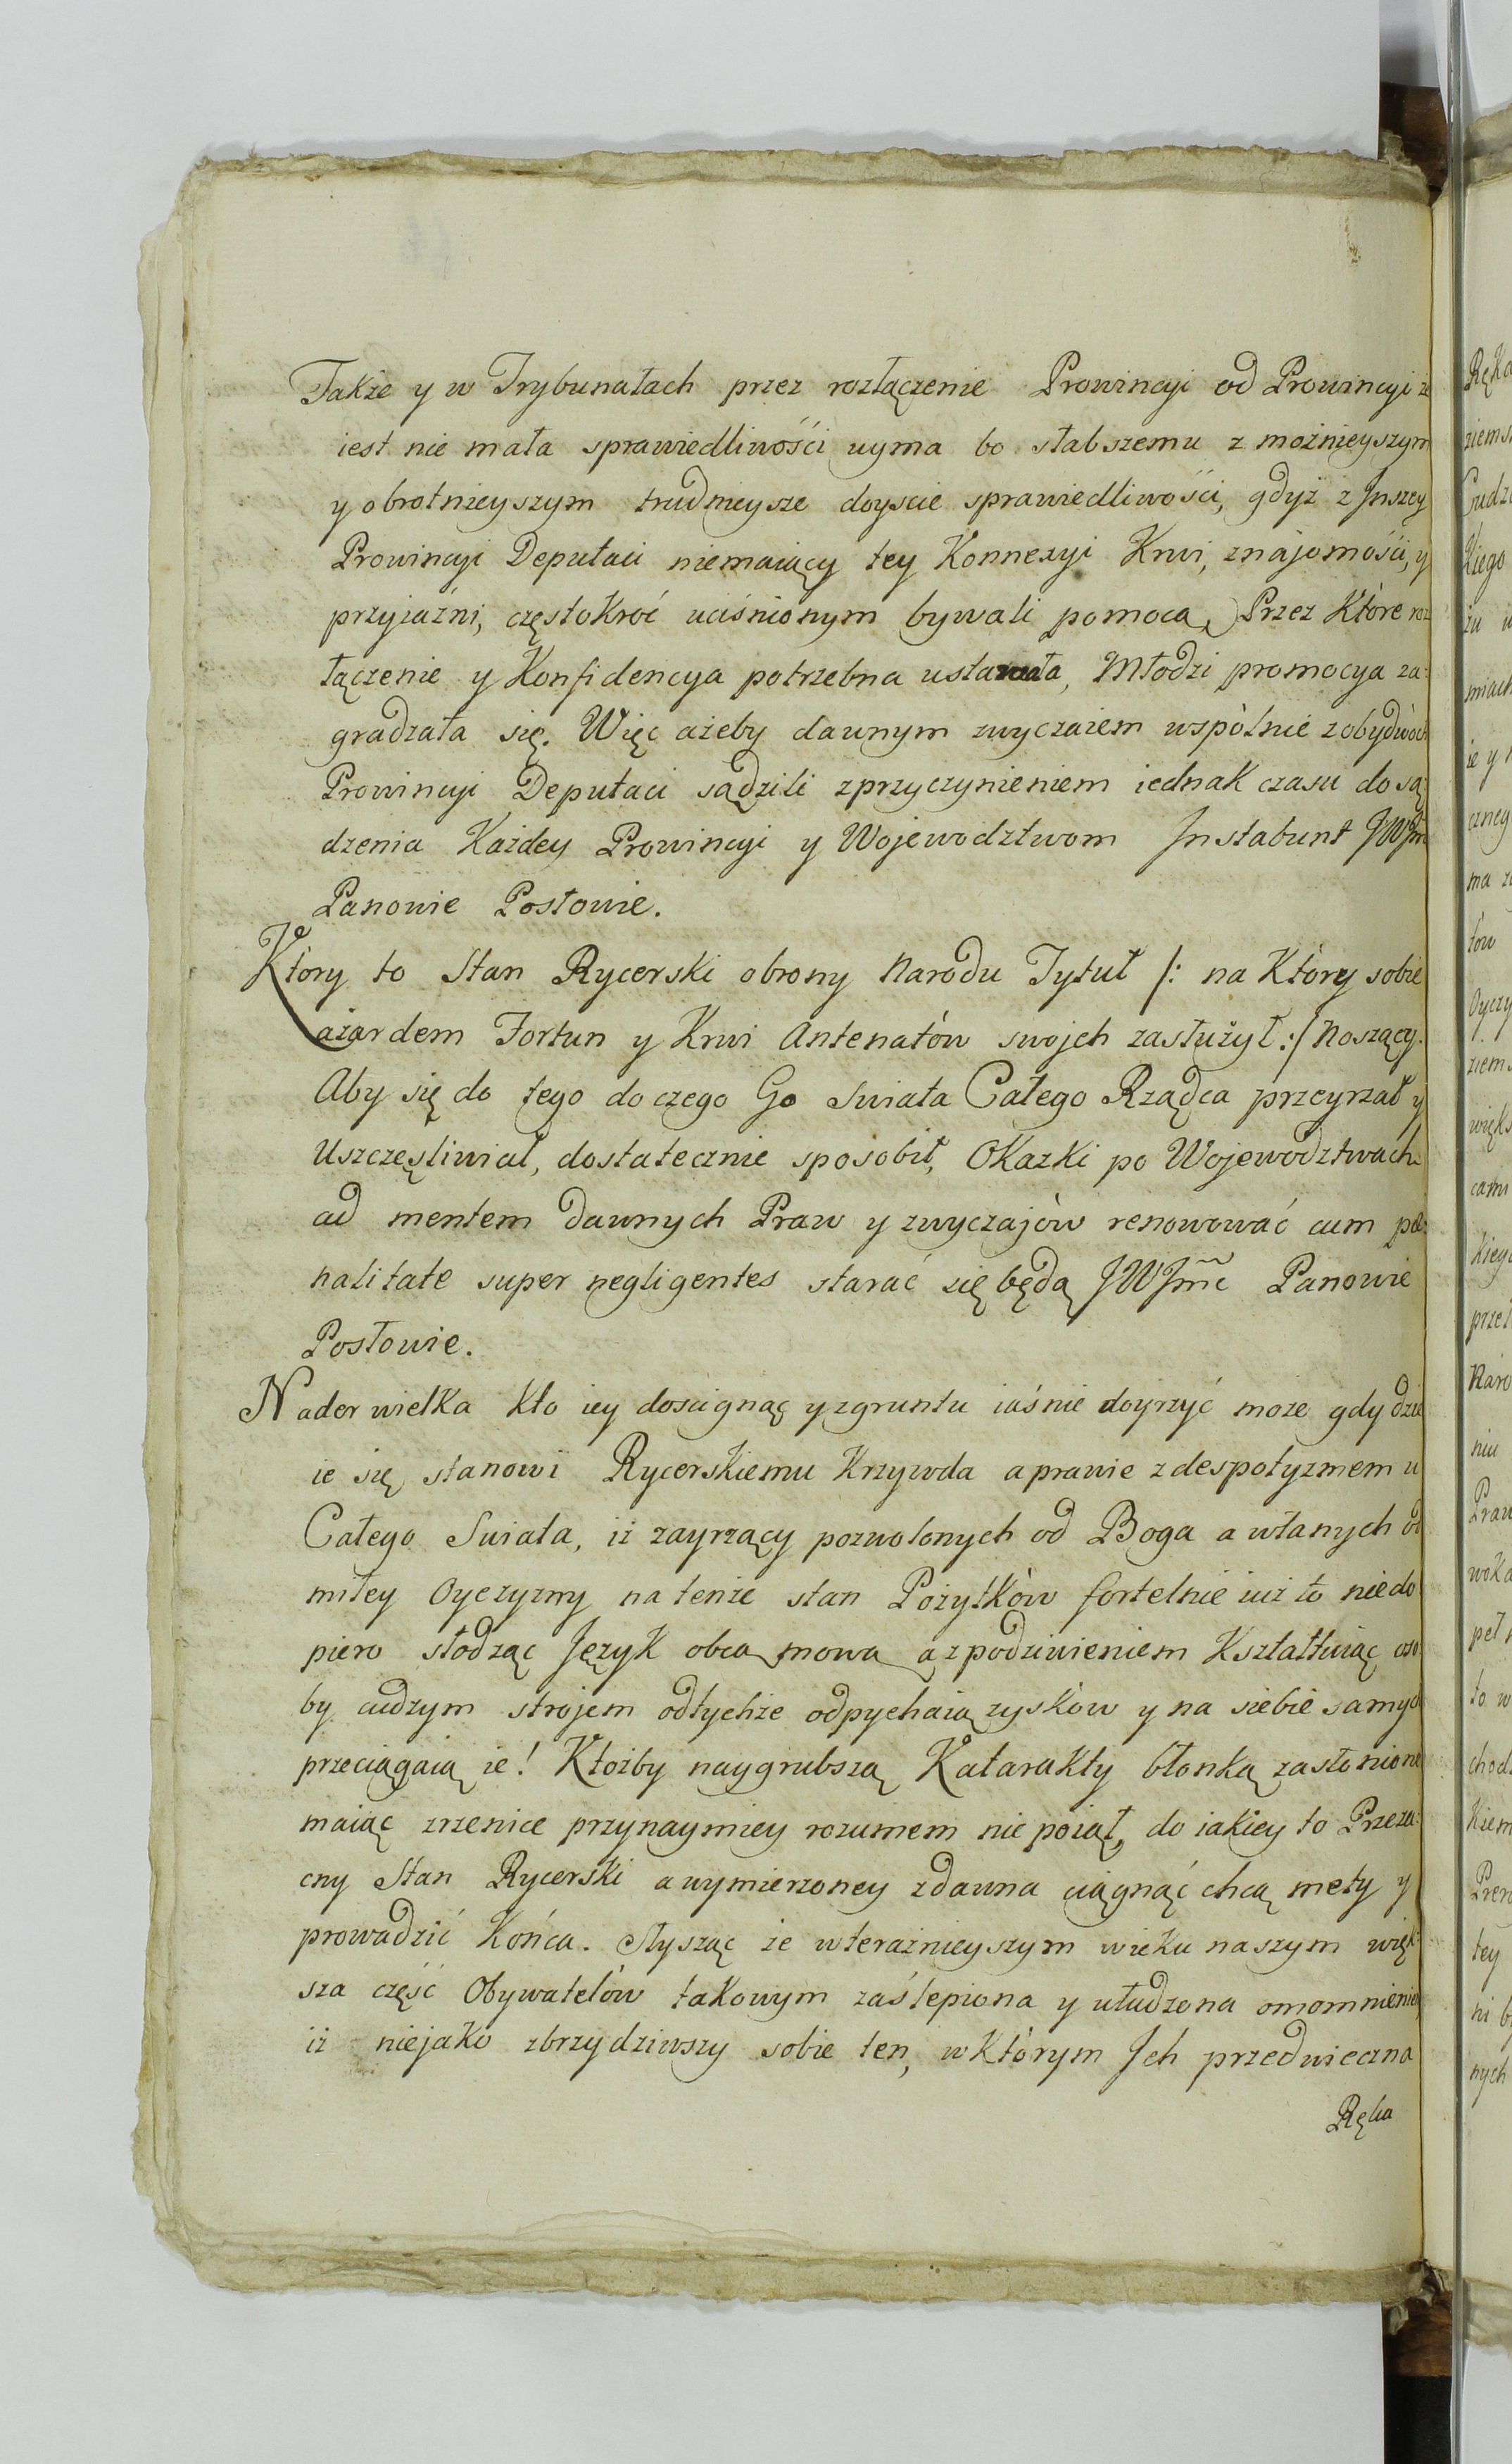 Także y w Trybunałach przez rozłączenie Prowincyi od Prowincyi że
iest nie mała sprawiedliwości uyma bo słabszemu z możnieyszym
y obrotnieyszym trudnieysze doyscie sprawiedliwości, gdyż z Jnszey
Prowincyi Deputaci niemaiący tey Konnexyi Krwi, znajomości, y
przyiaźni, częstokroć uciśnionym bywali pomocą, Przez Które roz
łączenie y Konfidencya potrzebna ustawała, Młodzi promocya za:
gradzała się. Więc ażeby dawnym zwyczaiem wspólnie z obydwóch
Prowincyi Deputaci sądzili z przyczynieniem iednak czasu do są
dzenia Każdey Prowincyi y Wojewodztwom Jnstabunt JWJm
Panowie Posłowie.
Który to Stan Rycerski obrony Narodu Tytuł /: na Który sobie
azardem Fortun y Krwi Antenatów swojch zasłużył :/ Noszący.
Aby się do tego do czego Go Swiata Całego Rządca przeyrzał y
Uszczęsliwiał, dostatecznie sposobił, OKazki po Wojewodztwach
ad mentem dawnych Praw y zwyczajów renowować cum pœ
nalitate super negligentes starać się będą JWJmc Panowie
Posłowie.
Nader wielka Kto iey doscignąć y zgruntu iaśnie doyrzyć może gdy dzie
ie się stanowi Rycerskiemu Krzywda a prawie z despotyzmem u
Całego Swiata, iż zayrzący pozwolonych od Boga a włanych od
miłey Oyczyzny na tenże stan Pożytków fortelnie iuż to niedo
piero słodząc Język obcą mową a z podziwieniem Kształtuiąc oso
by cudzym strojem od tychże odpychaią zysków y na siebie samych
przeciągaią ie! Któżby naygrubszą Katarakty błonką zasłonione
maiąc zrzenice przynaymniey rozumem nie poiął, do iakiey to Przeza:
cny Stan Rycerski a wymierzoney zdawna ciągnąć chcą mety y
prowadzić Końca. Słysząc że w teraźnieyszym wieku naszym więk
sza część Obywatelów takowym zaślepiona yułudzona omomnieniem
iż niejako zbrzydziwszy sobie ten, w Którym Jch przedwieczna
Ręka